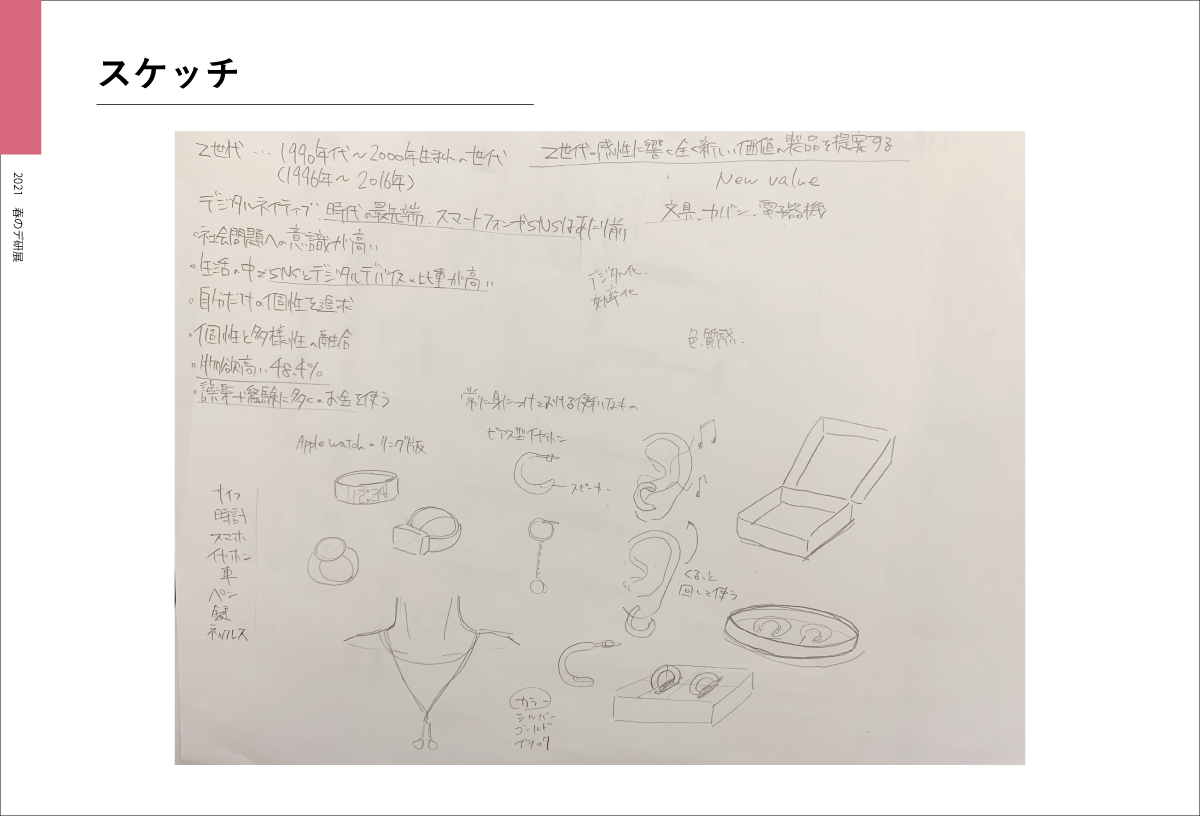 スケッチ
2021 春のデ研展
Z世代… 1990年代～2000年生まれの世代
(1996年～2016年)
Z世代の感性に響く全く新しい価値の製品を提案する
New value
デジタルネイティブ. 時代の最先端. スマートフォンやSNSは当たり前
文具. カバン. 電子機器
・社会問題への意識が高い
・生活の中でSNSとデジタルデバイスの比重が高い
デジタル化.
・自分だけの個性を追求
・個性と多様性の融合
色. 質感.
・物欲高い 48.4%
・誤楽や経験に多くのお金を使う
常に身につけておける便利なもの
Apple watchのリング版
ピアス型イヤホン
スピーカー
12:34
ナイフ
時計
スマホ
イヤホン
車
ペン
鍵
ネックレス
くるっと
回して使う
カラー
シルバー
ゴールド
ブラック